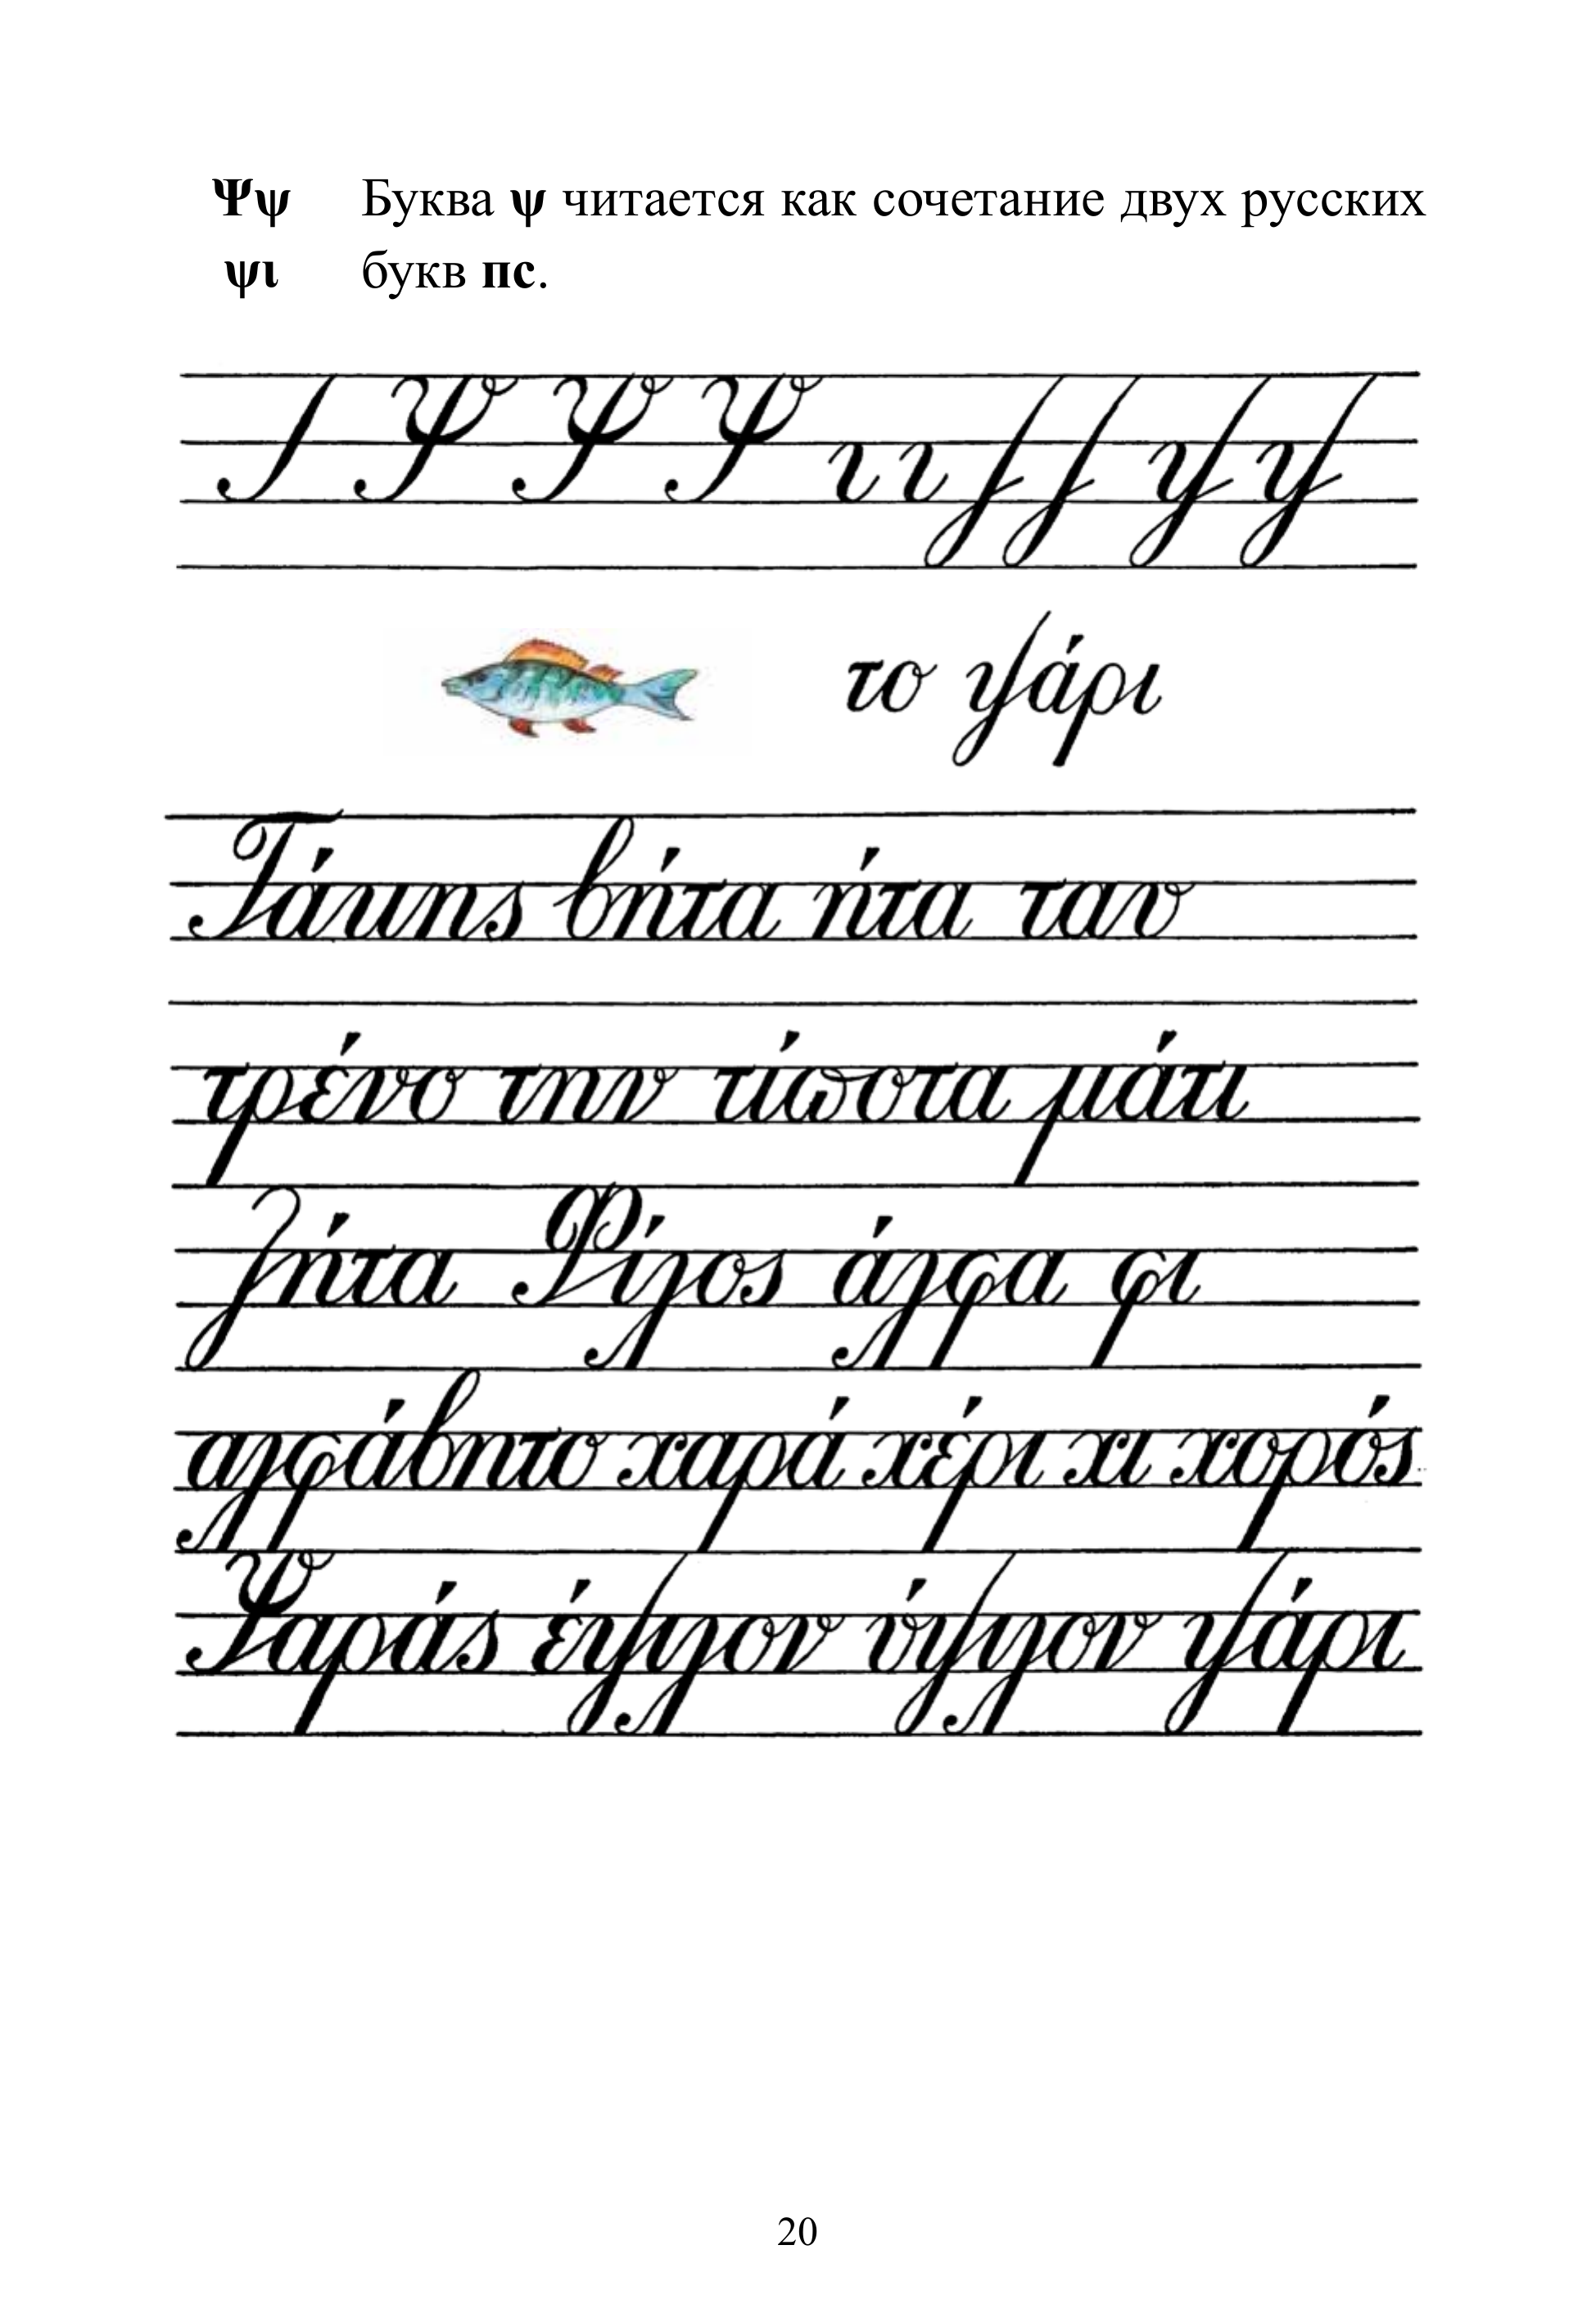 Ψψ Буква ψ читается как сочетание двух русских
ψι букв пс.
Ψ Ψ Ψ ι ι ψ ψ
το ψάρι
Τάκης βήτα ήτα ταυ
τρένο την τίποτα μάτι
ζήτα Φίλος άλφα φι
αλφάβητο χαρά χέρι χι χορός
Ψαράς έψιλον ύψιλον ψάρι
20